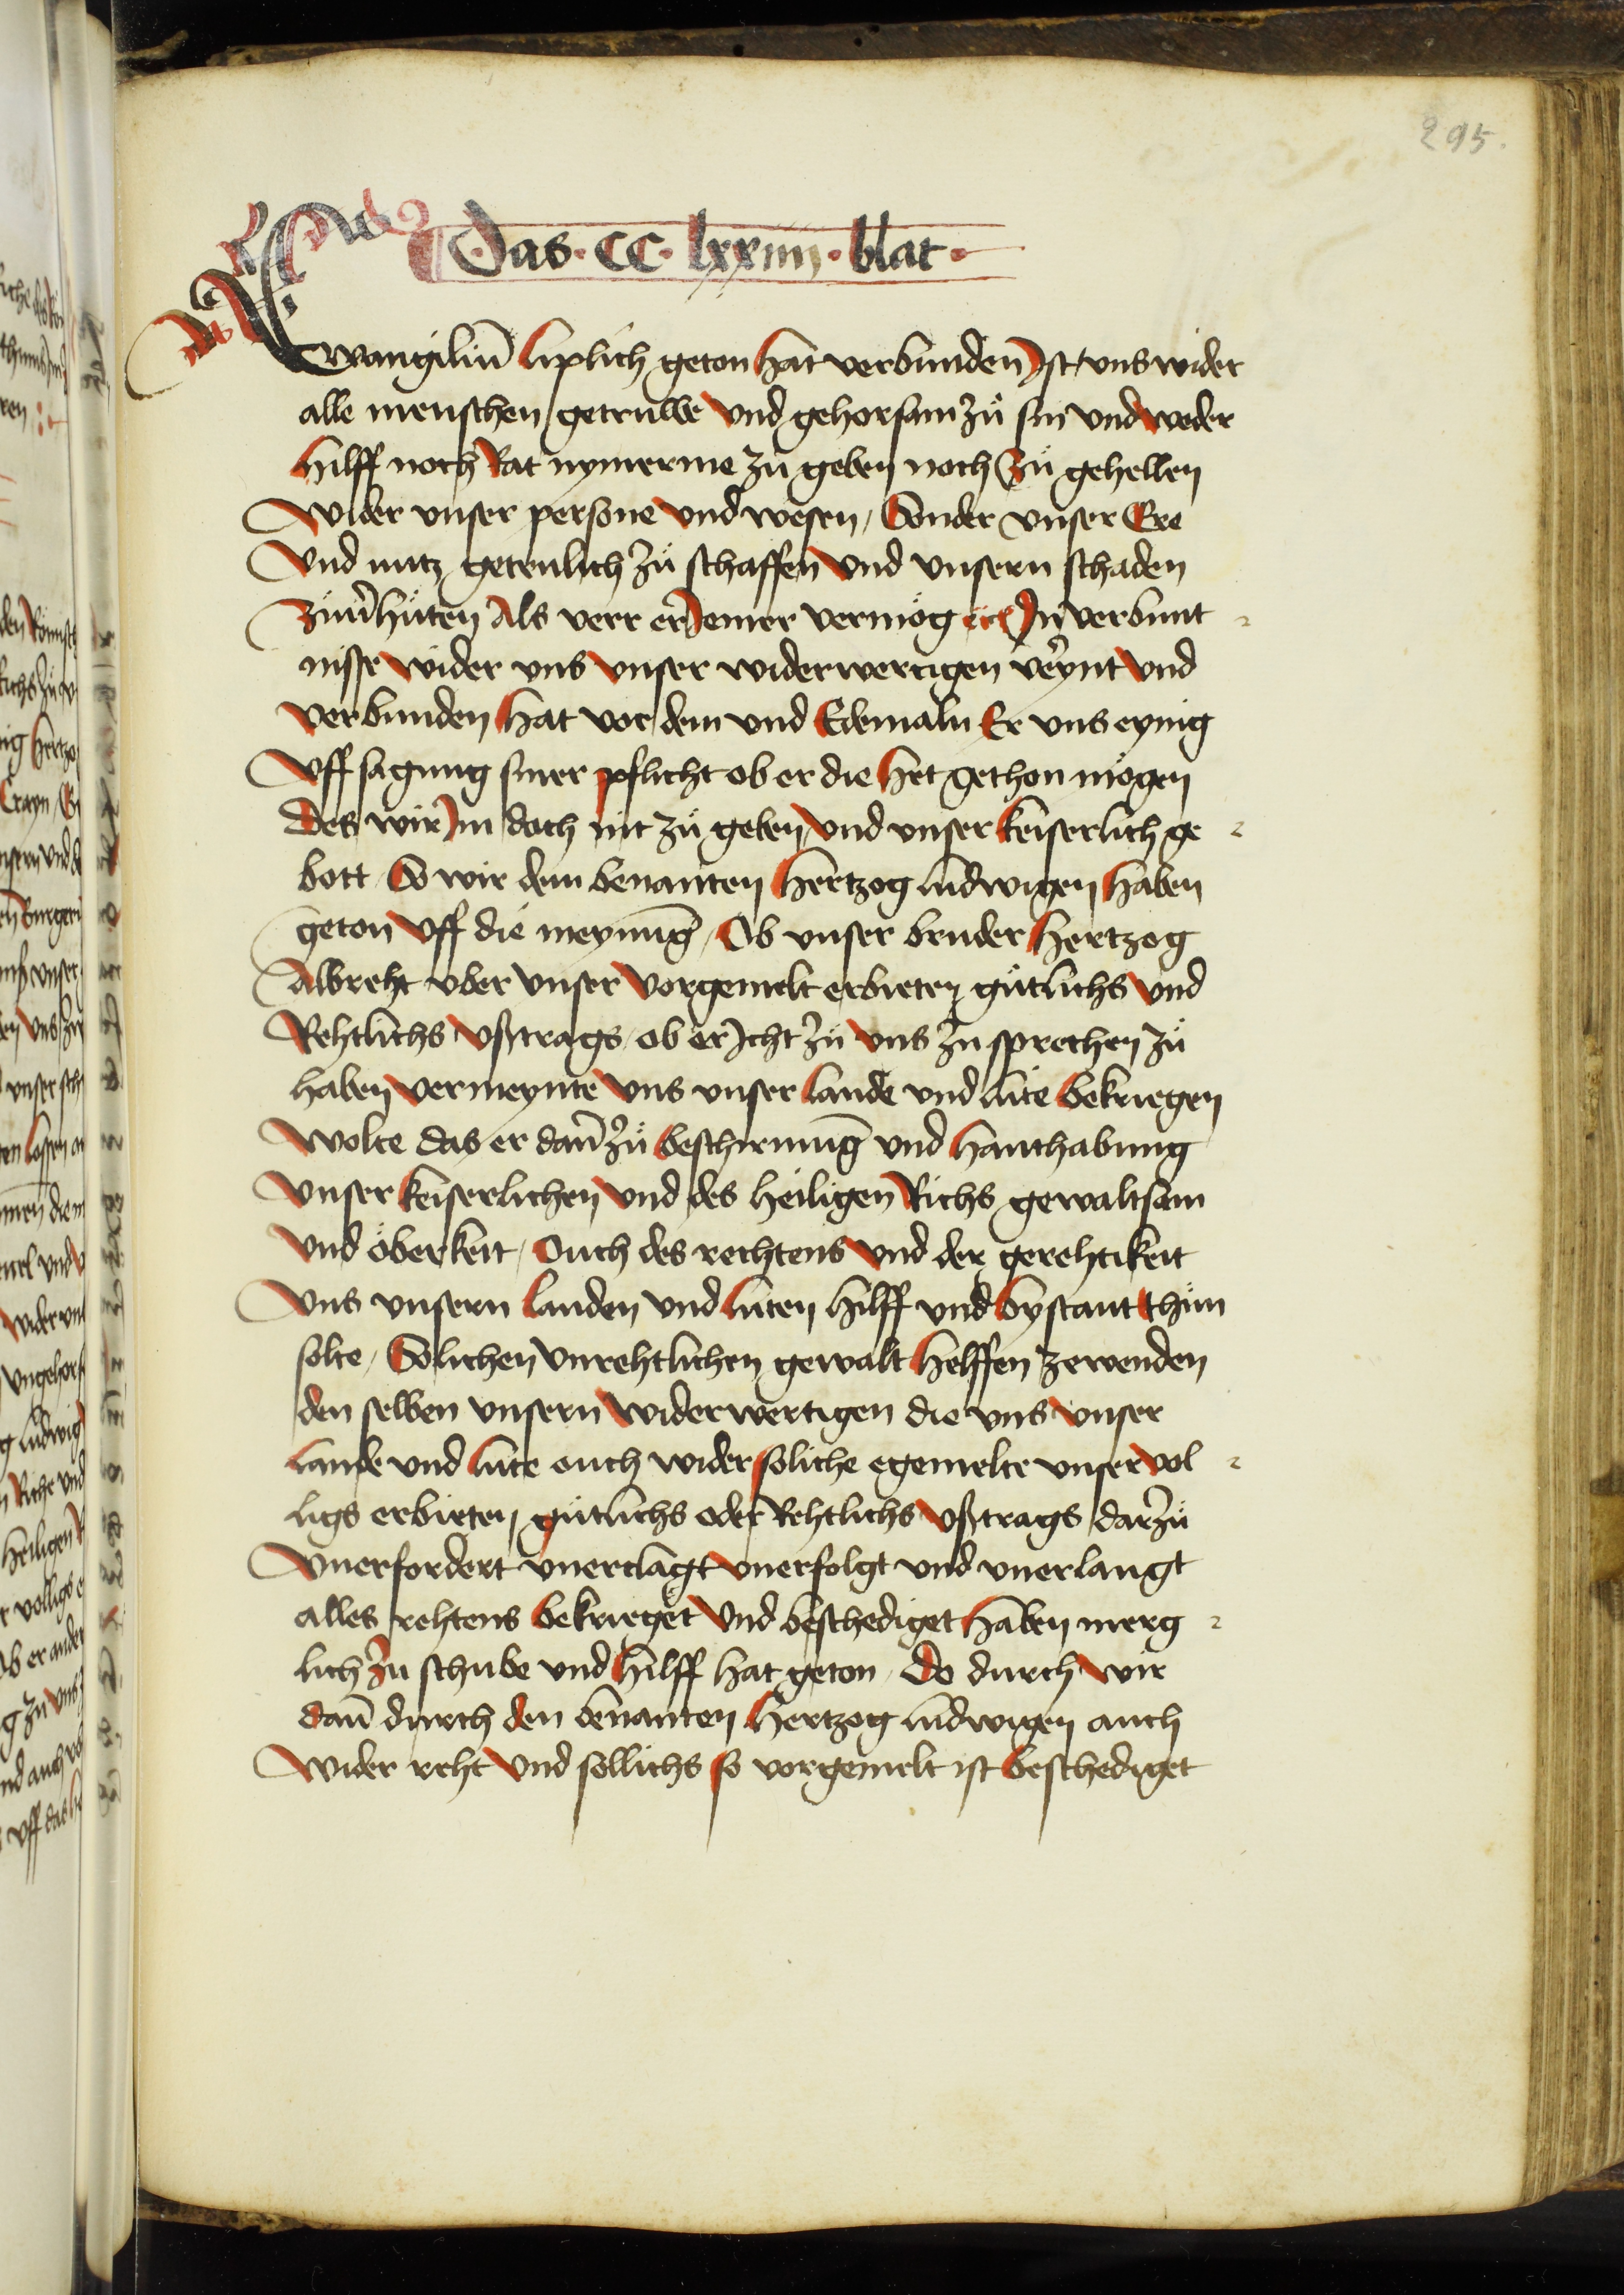 295.
Das · CC · lxxiiii · blat ·
Ewangiliū liplich geton hat verbunden Ist / vns wider
alle menschen getruwe vnd gehorsam zů sin vnd weder
hilff noch Rat nymerme zů geben noch zů gehellen
wider vnser persone vnd wesen / Sonder vnser Ere
vnd nutz getrulich zů schaffen vnd vnsern schaden
zůuerhüten Als verr er Jemer vermög In verbunt
nisse wider vns vnser widerwertigen veͬynt vnd
verbunden hat vor dem vnd Edemaln Er vns eynig
vff sagung siner pflicht ob er die het gethon mögen
des wir Im doch nit zů geben vnd vnser keiserlich ge
bott So wir dem benanten hertzog ludwigen haben
geton vff die meynung / Ob vnser bruder hertzog
Albreht vber vnser vorgemelt erbieten gütlichs vnd
Rehtlichs vßtrags / ob er Icht zů vns zů sprechen zů
haben vermeynte vns vnser lande vnd lute bekriegen
wolte das er dan̄ zů beschirmung vnd hanthabung
vnser keiserlichen vnd des heiligen Richs gewaltsam
vnd öberkeit / Ouch des rechtens vnd der gerehtikeit
vns vnsern landen vnd luten hilff vnd bystant thůn
solte / Solichen vnrehtlichen gewalt helffen zewenden
den selben vnsern widerwertigen die vns vnser
lande vnd lute ouch wider soliche egemelte vnser vol
ligs erbieten gütlichs oder Rehtlichs vßtrags darzů
vnerfordert vnerclagt vnerfolgt vnd vnerlangt
alles rehtens bekrieget vnd beschediget haben merg
lich zů schube vnd hilff hat geton / Do durch wir
dan̄ durch den benanten hertzog ludwigen auch
wider reht vnd sollichs so vorgemelt ist beschediget